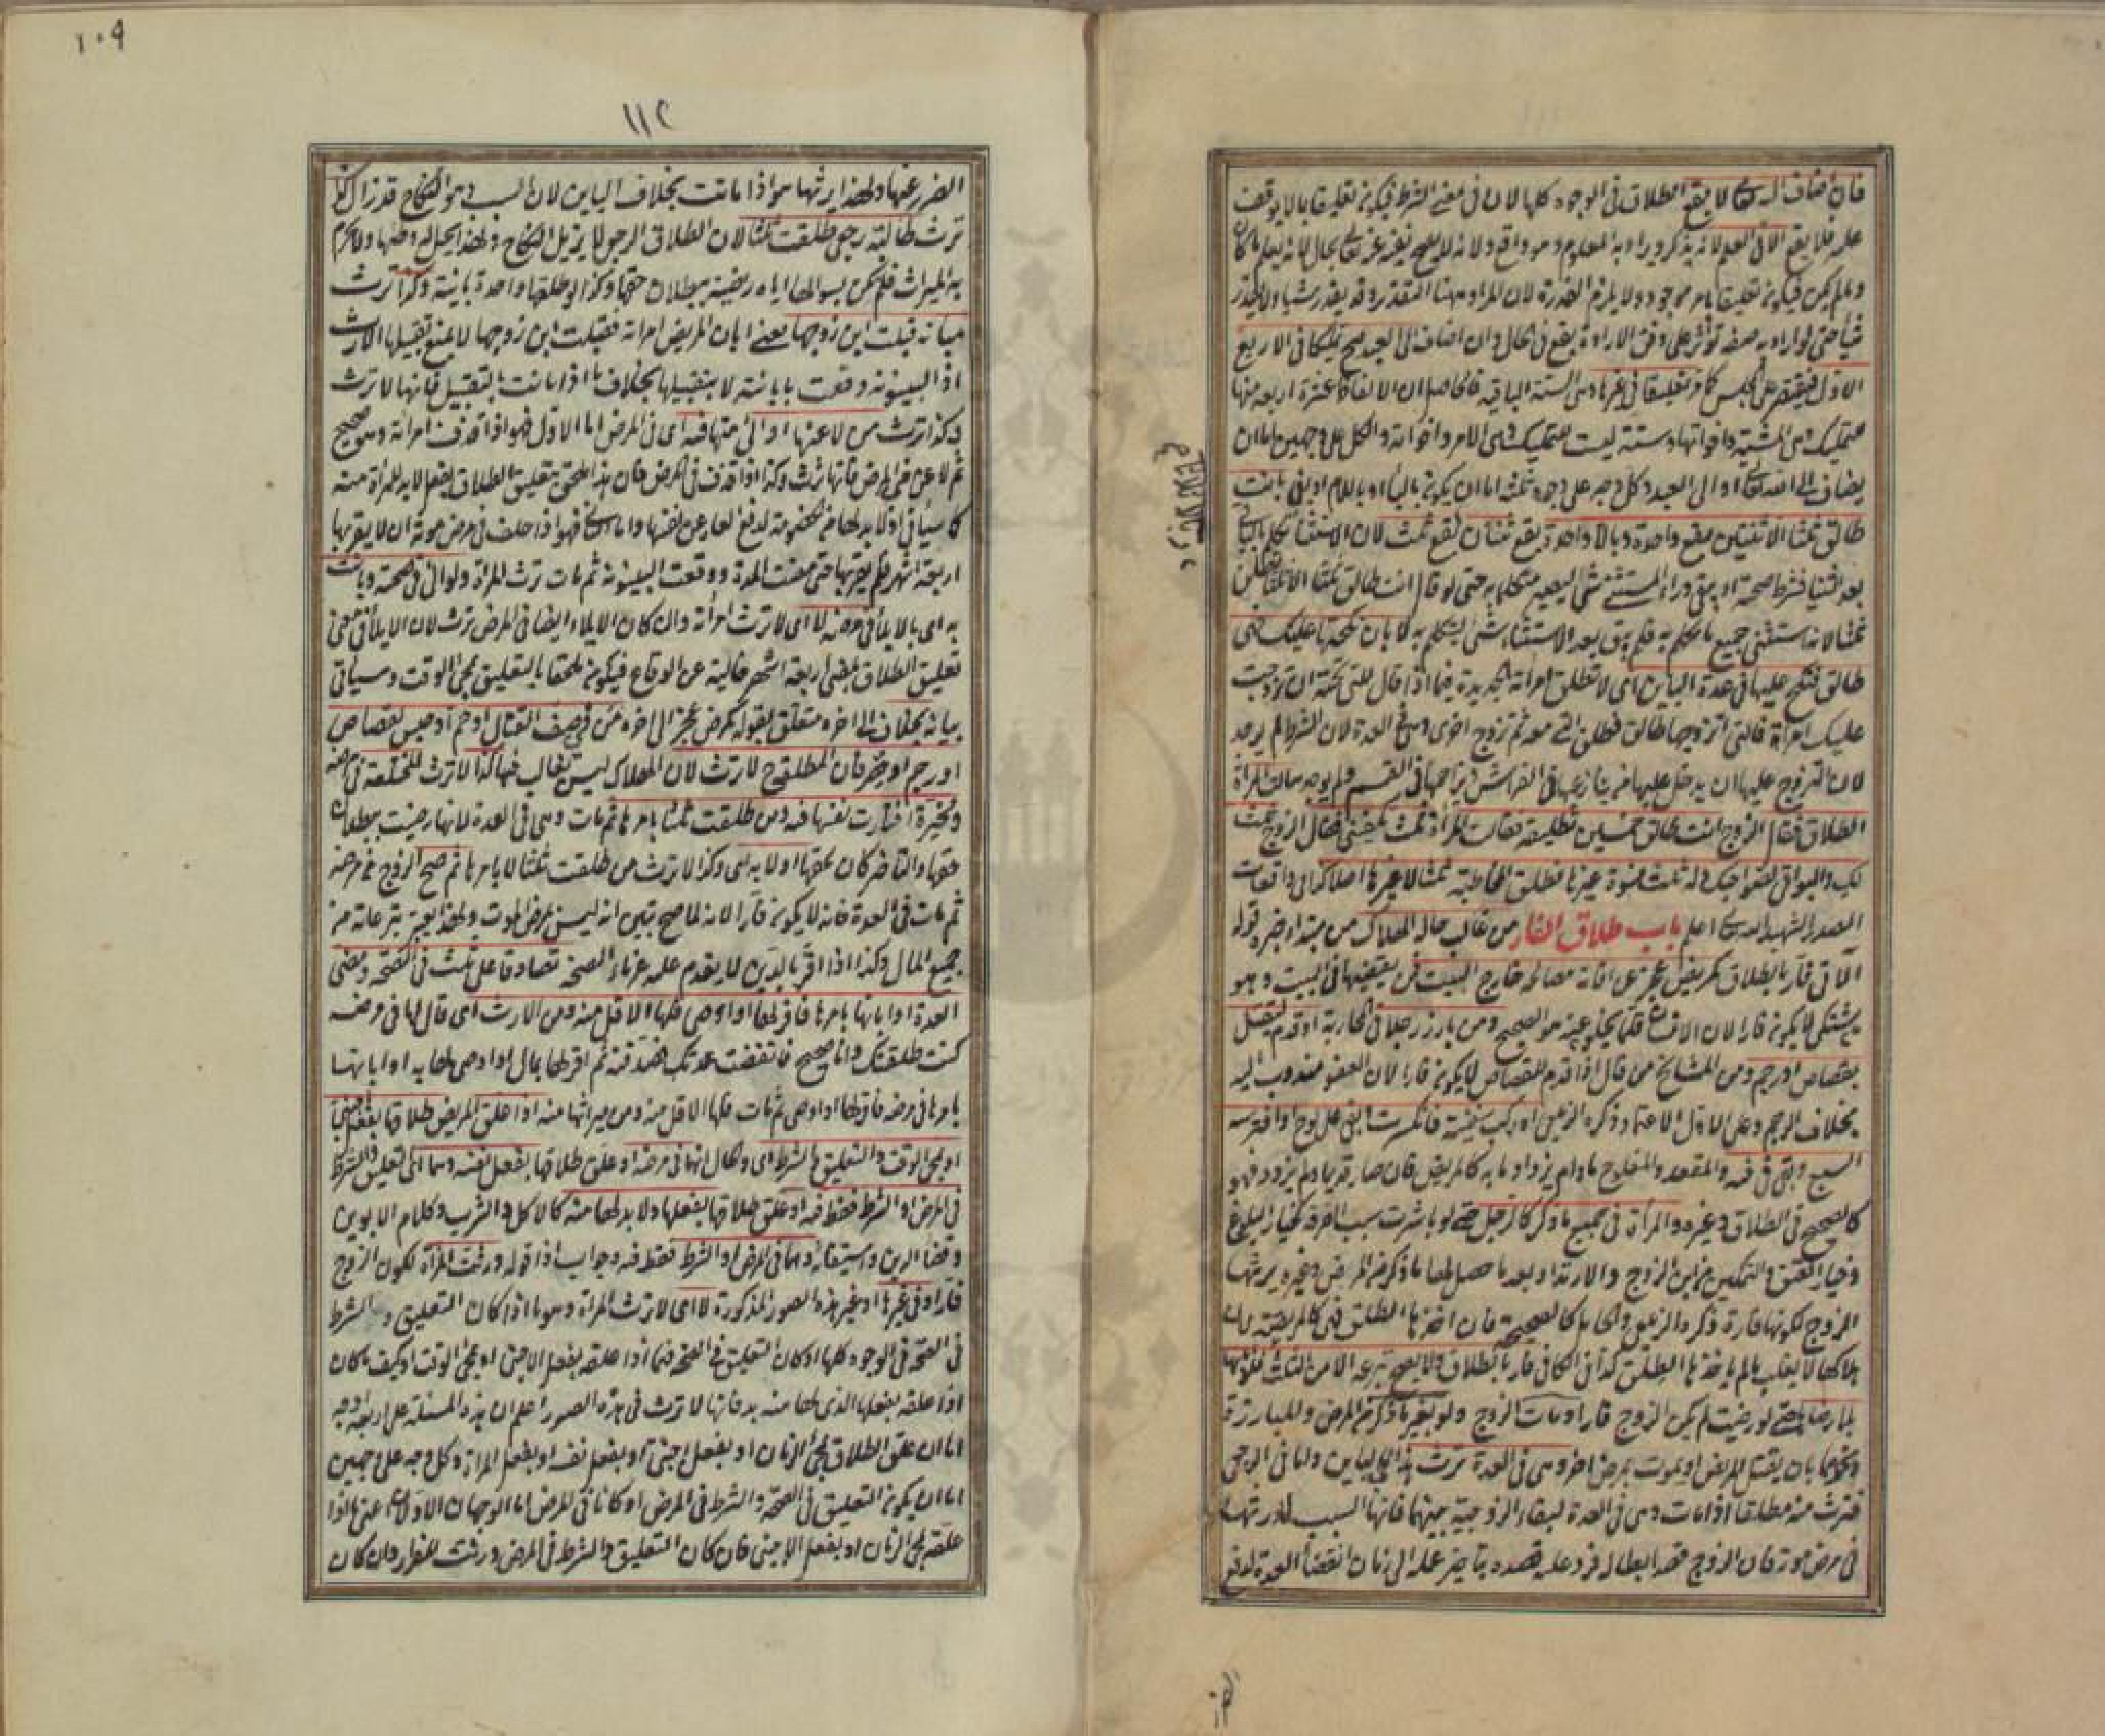 فان اضاف الى الله تعالى لا يقع الطلاق في الوجوه كلها لان في معنى الشرط فيكون تعليقا بما لا يوقف
عليه فلا يقع الا في العلم لانه يذكر ويراد به المعلوم وهو واقع ولانه لا يصح نفيه عن الله تعالى بحال لانه يعلم ما كان
وما لم يكن فيكون تعليقا بامر موجود ولا يلزم القدرة لان المراد منها ههنا التقدير وقد يقدر شيئا ولا يقدر
شيأ حتى لو اراد به صفة تؤثر على وفق الارادة يقع في الحال وان اضاف الى العبد صح تمليكا في الاربع
الاول فيقتصر على المجلس كما مر تعليقا في غيرها وهي الستة الباقية فالحاصل ان الالفاظ عشرة اربعة منها
للتمليك وهي المشية واخواتها وستة ليست للتمليك وهي الامر واخواته والكل على وجهين اما ان
يضاف الى الله تعالى او الى العبد وكل وجه على وجوه ثلثة اما ان يكون بالباء او باللام او بفي انت
طالق ثلثا الا ثنتين يقع واحدة وبالا واحدة يقع ثنتان يقع ثلث لان الاستثناء تكلم بالباقي
بعد الثنيا فشرط صحته ان يبقى وراء المستثنى شئ ليصير متكلما به حتى لو قال انت طالق ثلثا الا ثلثا تطلق
ثلثا لانه استثنى جميع ما تكلم به فلم يبق بعد الاستثناء شئ ليتكلم به قال ان نكحتها عليك فهي
طالق فنكح عليها في عدة البائن اى لا تطلق امرأته الجديدة فيما اذا قال للتي تحته ان تزوجت
عليك امرأة فالتي اتزوجها طالق فطلق التي معه ثم تزوج اخرى وهي في العدة لان الشرط لم يوجد
لان التزوج عليها ان يدخل عليها من ينازعها في الفراش ويزاحمها في القسم ولم يوجد سألت المرأة
الطلاق فقال الزوج انت طالق خمسين تطليقة فقالت المرأة ثلث يكفيني فقال الزوج ثلث
لك والبواقي لصواحبك وله ثلث نسوة غيرها تطلق المخاطبة ثلثا لا غيرها اصلا كذا في واقعات
الصدر الشهيد والله تعالى اعلم باب طلاق الفار من غالب حاله الهلاك من مبتدأ خبره قوله
الآتي فار بالطلاق كمريض عجز عن اقامة مصالحه خارج البيت فمن يقضيها في البيت وهو
يشتكي لا يكون فارا لان الانسان قلما يخلو عنه هو الصحيح ومن بارز رجلا في المحاربة او قدم ليقتل
بقصاص او رجم ومن المشايخ من قال اذا قدم للقصاص لا يكون فارا لان العفو مندوب اليه
بخلاف الرجم وعلى الاول الاعتماد ذكره الزيلعي او ركب سفينة فانكسرت فبقي على لوح او افترسه
السبع وبقي في فمه والمقعد والمفلوج ما دام يزداد ما به كالمريض فان صار قديما ولم يزدد فهو
كالصحيح في الطلاق وغيره والمرأة في جميع ما ذكر كالرجل حتى لو باشرت سبب الفرقة كخيار البلوغ
وخيار العتق والتمكين من ابن الزوج والارتداد بعد ما حصل لها ما ذكر من المرض وغيره يرثها
الزوج لكونها فارة ذكره الزيلعي والحامل كالصحيحة فان اخذها الطلق فهي كالمريضة لان
هلاكها لا يغلب ما لم ياخذها الطلق كذا في الكافي فار بالطلاق ولا يصح تبرعه الا من الثلث فلو ابانها
بلا رضاها حتى لو رضيت لم يكن الزوج فارا ومات الزوج ولو بغير ما ذكر من المرض والمبارزة
ونحوهما بان يقتل المريض او يموت بمرض اخر وهي في العدة ترث هذا في البائن واما في الرجعي
فترث منه مطلقا اذا مات وهي في العدة لبقاء الزوجية بينهما فانها السبب لارثها
في مرض موته فان الزوج قصد ابطاله فرد عليه قصده بتاخير عمله الى زمان انقضاء العدة لدفع
١٠٩
١١٢
الضرر عنها ولهذا يرثها هو اذا ماتت بخلاف البائن لان السبب وهو النكاح قد زال كذا
ترث طالبة رجعي طلقت ثلثا لان الطلاق الرجعي لا يزيل النكاح ولهذا يحل له وطئها ولا يحرم
به الميراث فلم تكن بسؤالها اياه رضية ببطلان حقها وكذا لو طلقها واحدة بائنة وكذا ترث
مبانة قبلت ابن زوجها يعني ابان المريض امرأته فقبلت ابن زوجها لا يمنع تقبيلها الارث
اذ البينونة وقعت بابانته لا بتقبيلها بخلاف ما اذا بانت بالتقبيل فانها لا ترث
وكذا ترث من لاعنها او آلى منها فيه اى في المرض اما الاول فهو اذا قذف امرأته وهو صحيح
ثم لاعن في المرض فانها ترث وكذا اذا قذف في المرض فان هذا ملحق بتعليق الطلاق بفعل لا بد للمرأة منه
كما سيأتي اذ لا بد لها من الخصومة لدفع العار عن نفسها واما الثاني فهو اذا حلف في مرض موته ان لا يقربها
اربعة اشهر فلم يقربها حتى مضت المدة ووقعت البينونة ثم مات ترث المرأة ولو آلى في صحته وبانت
به اى بالايلاء في مرضه لا اى لا ترث امرأته وان كان الايلاء ايضا في المرض ترث لان الايلاء في معنى
تعليق الطلاق بمضي اربعة اشهر خالية عن الوقاع فيكون ملحقا بالتعليق بمجئ الوقت وسيأتي
بيانه بخلاف الى اخره متعلق بقوله كمريض عجز الى اخره من في صف القتال او حم او حبس لقصاص
او رجم او حصر فان المطلق ح لا ترث لان الهلاك ليس بغالب فيها كذا لا ترث المختلعة في مرضه
ومخيرة اختارت نفسها فيه ومن طلقت ثلثا بامرها ثم مات وهي في العدة لانها رضيت ببطلان
حقها والتأخير كان لحقها او لا به اى وكذا لا ترث من طلقت ثلثا لا بامرها ثم صح الزوج من مرضه
ثم مات في العدة فانه لا يكون فارا لانه لما صح تبين انه ليس مرض الموت ولهذا يعتبر تبرعاته من
جميع المال وكذا اذا اقر بالدين لا يقدم عليه غرماء الصحة تصادقا على ثلث في الصحة ومضي
العدة او ابانها بامرها فاقر لها او اوصى فلها الاقل منه ومن الارث اى قال لها في مرضه
كنت طلقتك وانا صحيح فانقضت عدتك فصدقته ثم اقر لها بمال او اوصى لها به او ابانها
بامرها في مرضه فاقر لها او اوصى ثم مات فلها الاقل منه ومن ميراثها منه اذا علق المريض طلاقها بفعل اجنبي
او بمجئ الوقت والتعليق والشرط اى والحال انهما في مرضه او علق طلاقها بفعل نفسه وهما اى التعليق والشرط
في المرض او الشرط فقط فيه او علق طلاقها بفعلها ولا بد لها منه كالاكل والشرب وكلام الابوين
وقضاء الدين واستيفائه وهما في المرض او الشرط فقط فيه وجواب اذا قوله ورثت المرأة لكون الزوج
فارا وفي غيرها او غير هذه الصور المذكورة لا اى لا ترث المرأة وهو ما اذا كان التعليق والشرط
في الصحة في الوجوه كلها او كان التعليق في الصحة فيما اذا علقه بفعل الاجنبي او بمجئ الوقت او كيف ما كان
اذا علقه بفعلها الذي لها منه بد فانها لا ترث في هذه الصور اعلم ان هذه المسئلة على اربعة اوجه
اما ان علق الطلاق بمجئ الزمان او بفعل اجنبي او بفعل نفسه او بفعل المرأة وكل وجه على وجهين
اما ان يكون التعليق في الصحة والشرط في المرض او كانا في المرض اما الوجهان الاولان اعني ما اذا
علقه بمجئ الزمان او بفعل الاجنبي فان كان التعليق والشرط في المرض ورثت للفرار وان كان